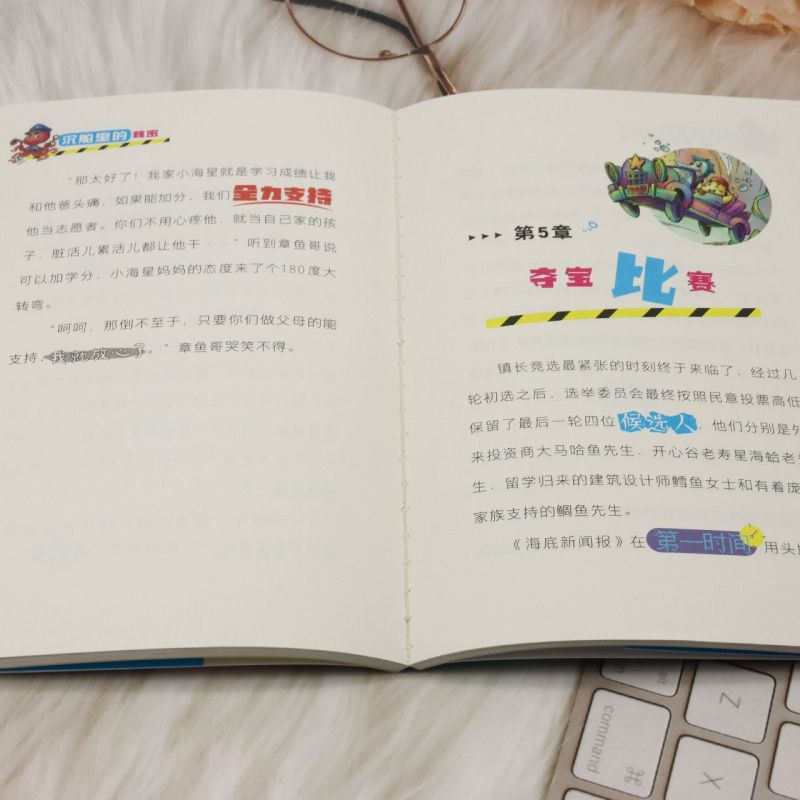 沉船里的秘密
“那太好了！我家小海星就是学习成绩让我
和他爸头痛，如果能加分，我们全力支持
他当志愿者。你们不用心疼他，就当自己家的孩
子，脏活儿累活儿都让他干……”听到章鱼哥说
可以加学分，小海星妈妈的态度来了个180度大
转弯。
“呵呵，那倒不至于，只要你们做父母的能
支持，我就放心了。”章鱼哥哭笑不得。
第5章
夺宝比赛
镇长竞选最紧张的时刻终于来临了，经过几
轮初选之后，选举委员会最终按照民意投票高低
保留了最后一轮四位候选人，他们分别是外
来投资商大马哈鱼先生、开心谷老寿星海蛤老先
生、留学归来的建筑设计师鳕鱼女士和有着庞
家族支持的鲷鱼先生。
《海底新闻报》在第一时间用头版
alt
Z
command
⌘
X